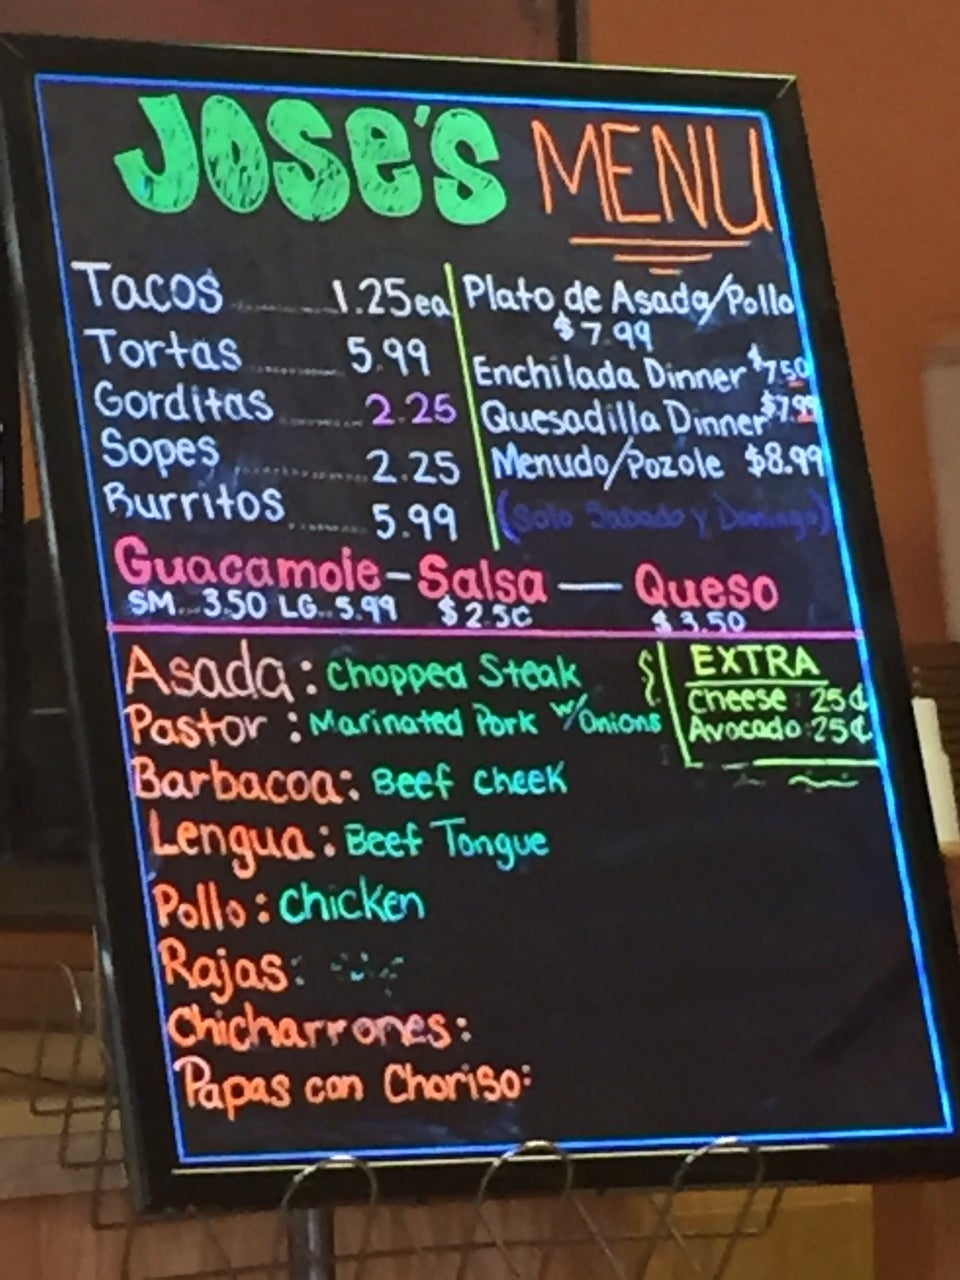 JOSE'S MENU
Tacos ........ 1.25ea
Tortas ........ 5.99
Gorditas ........ 2.25
Sopes ........ 2.25
Burritos ........ 5.99
Plato de Asada/Pollo
$7.99
Enchilada Dinner $7.50
Quesadilla Dinner $7.99
Menudo/Pozole $8.99
(Solo Sabado y Domingo)
Guacamole - Salsa — Queso
SM...3.50 LG..5.99 $2.50 $3.50
Asada: Chopped Steak
Pastor: Marinated Pork w/Onions
Barbacoa: Beef Cheek
Lengua: Beef Tongue
Pollo: Chicken
Rajas:
Chicharrones:
Papas con Choriso:
EXTRA
Cheese: 25¢
Avocado: 25¢